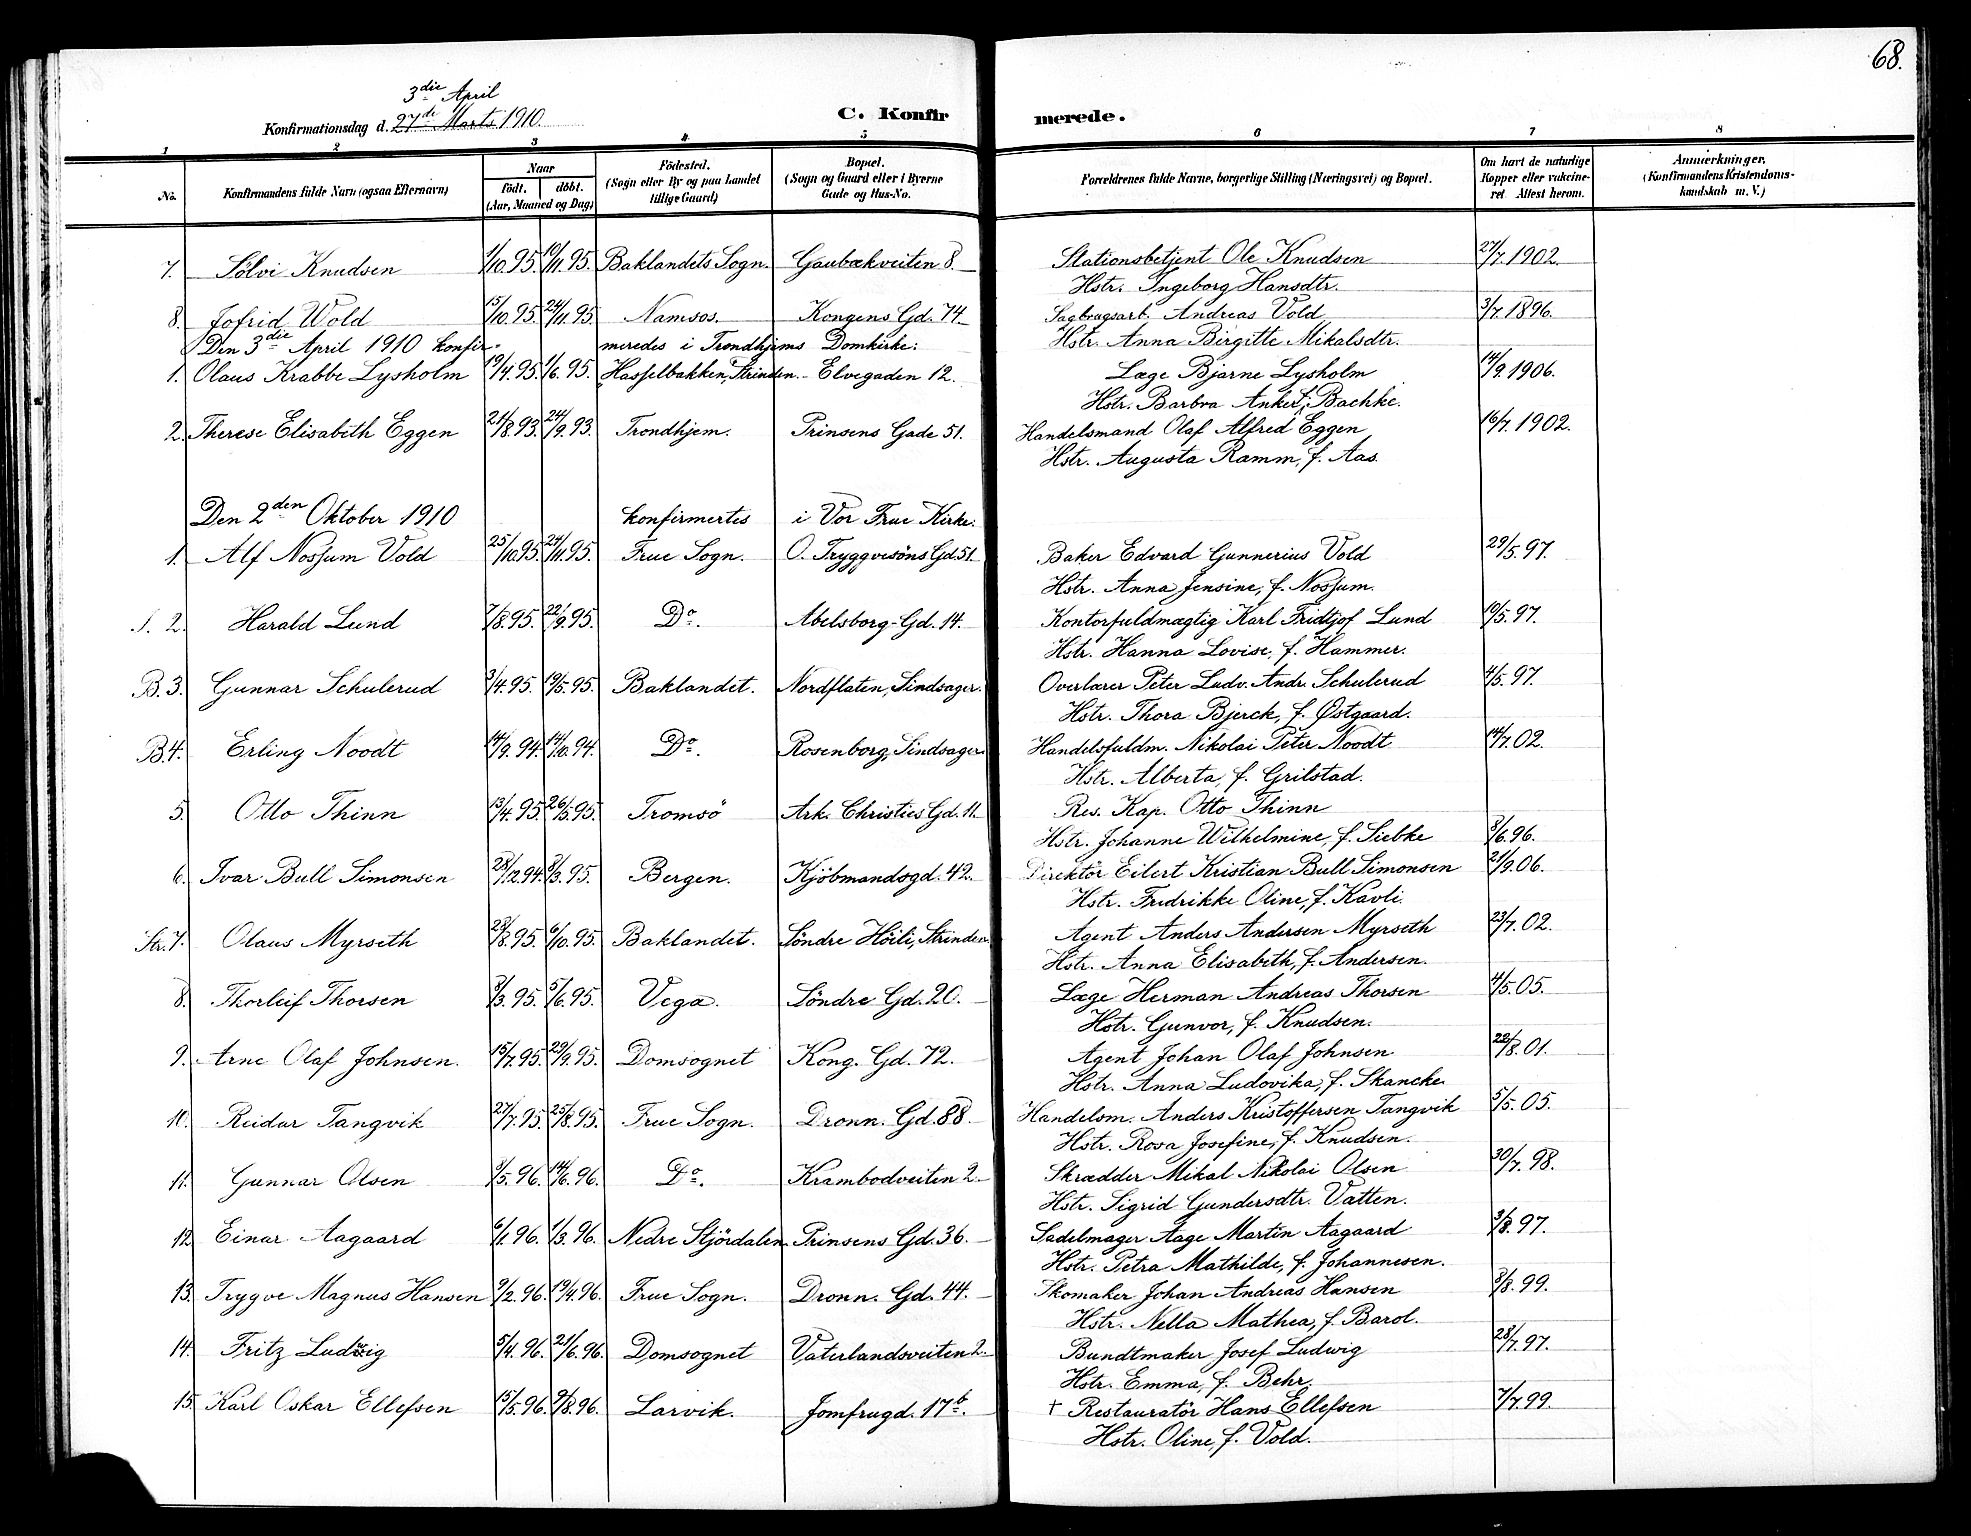 68.
3die April
Konfirmationsdag d. 27de Marts 1910.
C. Konfirmerede.
1 2 3 4 5 6 7 8
No. Konfirmandens fulde Navn (ogsaa Efternavn) Naar født. døbt. (Aar, Maaned og Dag) Födested. (Sogn eller By og paa Landet tillige Gaard) Bopæl. (Sogn og Gaard eller i Byerne Gade og Hus-No. Forældrenes fulde Navne, borgerlige Stilling (Næringsvei) og Bopæl. Om havt de naturlige Kopper eller vaccineret. Attest herom. Anmerkninger, (Konfirmandens Kristendomskundskab m. V.)
7. Sölvi Knudsen 1/10.95. 10/11.95. Baklandets Sogn. Gaubækveiten 8. Stationsbetjent Ole Knudsen 27/7.1902.
Hstr. Ingeborg Hansdtr.
8. Jofrid Wold 15/10.95. 24/11.95. Namsos. Kongens Gd. 74 Sagbrugsarb. Andreas Vold 3/7.1896.
Den 3die April 1910 konfirmeredes i Trondhjems Domkirke: Hstr. Anna Birgitte Mikalsdtr.
1. Olaus Krabbe Lysholm 19/4.95. 1/6.95. Hasselbakken, Strinden. Elvegaden 12. Læge Bjarne Lysholm 14/9.1906.
Hstr. Barbra Anker, f. Bachke.
2. Therese Elisabeth Eggen 21/8.93. 24/9.93. Trondhjem. Prinsens Gade 51. Handelsmand Olaf Alfred Eggen 16/7.1902.
Hstr. Augusta Ramm, f. Aas.
Den 2den Oktober 1910 konfirmertes i Vor Frue Kirke:
1. Alf Nossum Vold 25/10.95. 24/11.95. Frue Sogn. O. Tryggvesöns Gd. 51. Baker Edvard Gunnerius Vold 29/5.97.
Hstr. Anna Jensine, f. Nossum.
2. Harald Lund 7/8.95. 22/9.95. Do. Abelsborg-Gd. 14. Kontorfuldmægtig Karl Fridtjof Lund 19/5.97.
Hstr. Hanna Lovise, f. Hammer.
B. 3. Gunnar Schulerud 3/4.95. 19/5.95. Baklandet. Nordflaten, Sindsager. Overlærer Peter Ludv. Andr. Schulerud 4/5.97.
Hstr. Thora Bjerck, f. Østgaard.
B. 4. Erling Noodt 14/9.94. 14/10.94. Do. Rosenborg, Sindsager. Handelsfuldm. Nikolai Peter Noodt 14/7.02.
Hstr. Alberta, f. Grilstad.
5. Otto Thinn 13/4.95. 26/5.95. Tromsö Ark. Christies Gd. 11. Res. Kap. Otto Thinn
Hstr. Johanne Wilhelmine, f. Siebke 8/6.96.
6. Ivar Bull Simonsen 28/12.94. 3/3.95. Bergen. Kjöbmandsgd. 42. Direktör Eilert Kristian Bull Simonsen 21/9.06.
Hstr. Fredrikke Oline, f. Kavli.
Str. 7. Olaus Myrseth 28/8.95. 6/10.95. Baklandet. Söndre Höili, Strinden Agent Anders Andersen Myrseth 23/7.02.
Hstr. Anna Elisabeth, f. Andersen.
8. Thorleif Thorsen 3/3.95. 5/6.95. Vega. Söndre Gd. 20. Læge Herman Andreas Thorsen 4/5.05.
Hstr. Gunvor, f. Knudsen.
9. Arne Olaf Johnsen. 15/7.95. 29/9.95. Domsognet Kong. Gd. 72. Agent Johan Olaf Johnsen 22/8.01.
Hstr. Anna Ludovika, f. Skancke.
10. Reidar Tangvik 27/7.95. 25/8.95. Frue Sogn. Dronn. Gd. 88. Handelsm. Anders Kristoffersen Tangvik 5/5.05.
Hstr. Rosa Josefine, f. Knudsen.
11. Gunnar Olsen 3/5.96. 14/6.96. Do. Krambodveiten 2. Skrædder Mikal Nikolai Olsen 30/7.98.
Hstr. Sigrid Gundersdtr. Vatten.
12. Einar Aagaard 6/1.96. 1/3.96. Nedre Stjördalen. Prinsens Gd. 36. Sadelmager Aage Martin Aagaard 3/8.97.
Hstr. Petra Mathilde, f. Johannesen.
13. Trygve Magnus Hansen 9/2.96. 19/4.96. Frue Sogn. Dronn. Gd. 44. Skomaker Johan Andreas Hansen 3/8.99.
Hstr. Nella Mathea, f. Barol.
14. Fritz Ludwig 5/4.96. 21/6.96. Domsognet Vaterlandsveiten 2. Bundtmaker Josef Ludwig 28/7.97.
Hstr. Emma, f. Behr.
15. Karl Oskar Ellefsen 15/5.96. 9/8.96. Larvik. Jomfrugd. 17b. † Restauratör Hans Ellefsen 7/7.99.
Hstr. Oline, f. Vold.